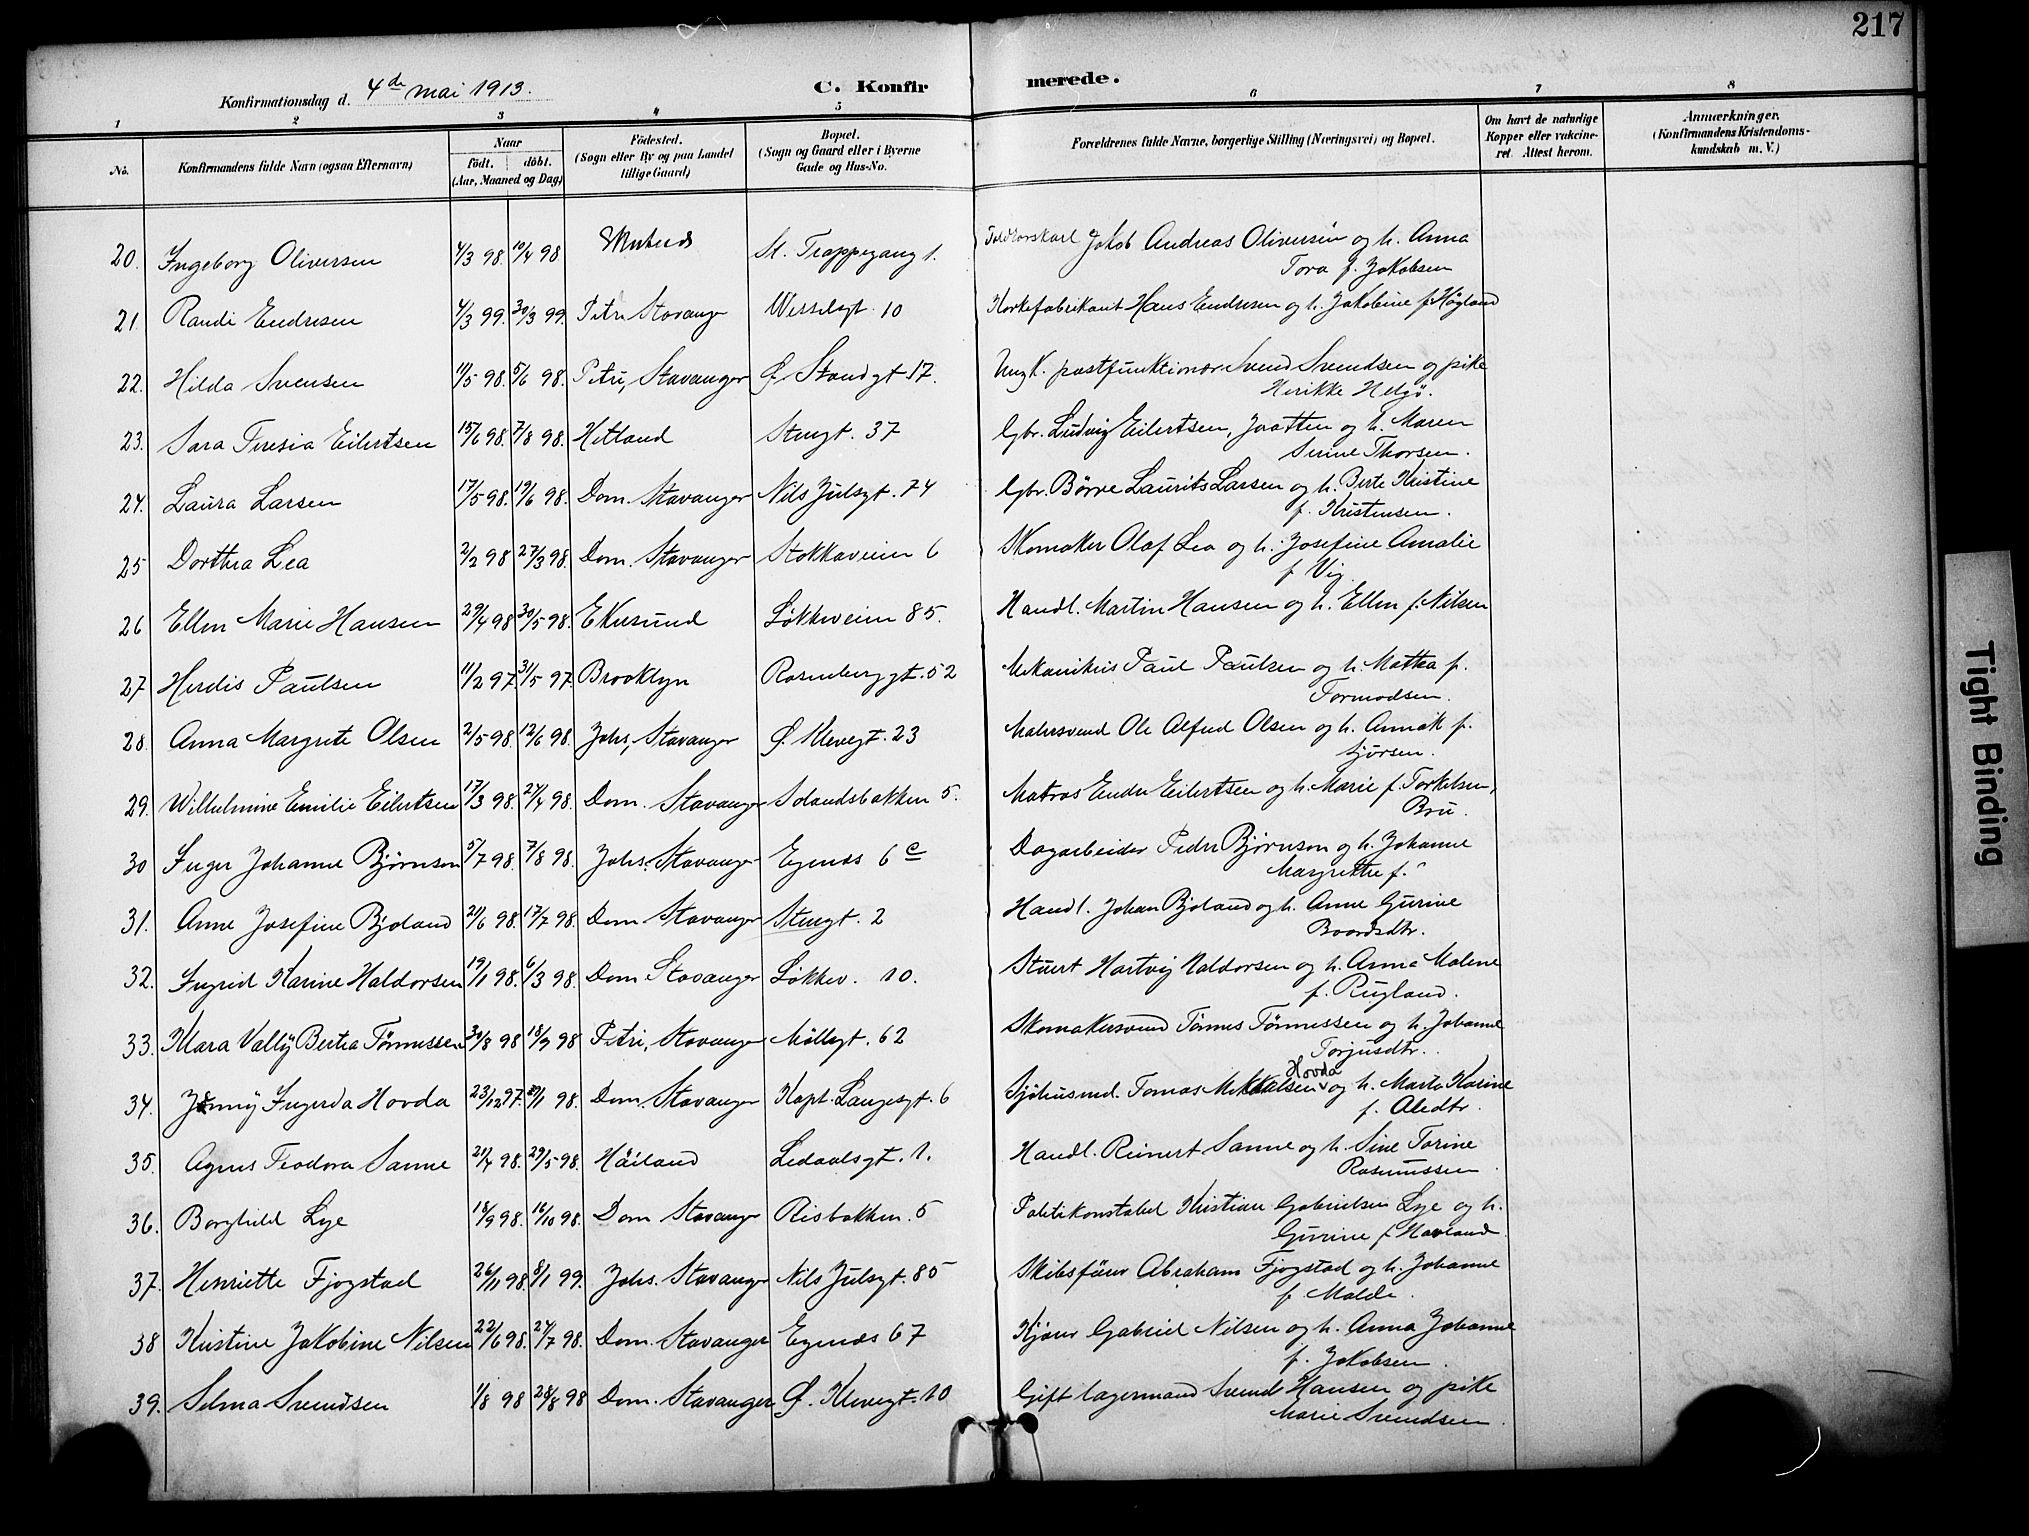 217
Konfirmationsdag d. 4de mai 1913.
C. Konfirmerede.
1 2 3 4 5 6 7 8
No. Konfirmandens fulde Navn (ogsaa Efternavn) Naar Födt. döbt. (Aar, Maaned og Dag) Födested. (Sogn eller By og paa Landet tillige Gaard) Bopæl. (Sogn og Gaard eller i Byerne Gade og Hus-No. Forældrenes fulde Navne, borgerlige Stilling (Næringsvei) og Bopæl. Om havt de naturlige Kopper eller vakcineret. Attest herom. Anmærkninger. (Konfirmandens Kristendomskundskab m. V.)
20. Ingeborg Oliversen 4/3 98. 10/4 98 St. Trappegang 1. Jakob Andreas Oliversen og h. Anna
Tora f. Jakobsen
21. Randi Endresen 4/3 99. 30/3 99. Petri Stavanger Wesselsgt. 10 Korkefabrikant Hans Endresen og h. Jakobine f. Högland
22. Hilda Svensen 11/5 98. 5/6 98. Petri, Stavanger Ø. Standgt 17. Ungk. postfunktionær Svend Svendsen og pike
Henrikke Helgö.
23. Sara Teresia Eilertsen 15/6 98. 7/8 98. Hetland Stengt. 37 Gbr. Ludvig Eilertsen, Jaatten og h. Maren
Serine Thorsen.
24. Laura Larsen 17/5 98. 19/6 98. Dom. Stavanger Nils Julsgt. 74 Gbr. Börre Laurits Larsen og h. Berte Kristine
f. Kristensen.
25 Dorthea Lea 2/2 98 27/3 98. Dom. Stavanger Stokkaveien 6 Skomaker Olaf Lea og h. Josefine Amalie
f Vig.
26 Ellen Marie Hansen 29/4 98 30/5 98. Ekersund Løkkeveien 85. Handl. Martin Hansen og h. Ellen f. Nilsen
27 Herdis Paulsen 11/2 97. 31/5 97. Brooklyn Rosenberggt. 52 Mekanikus Paul Paulsen og h. Mattea f.
Tormodsen.
28. Anna Margrete Olsen 2/5 98. 12/6 98. Johs, Stavanger Ø. Klevegt. 23 Malersvend Ole Alfred Olsen og h. Anna K f.
Sjursen.
29. Wilhelmine Emilie Eilertsen 17/3 98. 24/4 98. Dom. Stavanger Solandsbakken 5. Matros Endre Eilertsen og h. Marie f. Torkelsen,
Bru.
30 Inger Johanne Bjørnson 5/7 98. 7/8 98. Johs. Stavanger Egenæs 6c Dagarbeider Peder Bjørnson og h. Johanne
Margrethe f.
31. Anne Josefine Bjoland 21/6 98. 17/7 98. Dom Stavanger Stengt. 2 Handl. Johan Bjoland og h. Anne Gurine
Baardsdtr.
32. Ingrid Karine Haldorsen 19/1 98. 6/3 98. Dom Stavanger Løkkev. 10. Stuert Hartvig Haldorsen og h. Anna Malene
f. Rugland.
33. Klara Vally Bertea Tönnessen 30/8 98 18/9 98 Petri, Stavanger Möllegt. 62 Skomakersvend Tönnes Tönnessen og h. Johanne
Torjusdtr.
34. Jenny Ingerda Hovda 23/12 97. /1 98. Dom. Stavanger Kapt. Langesgt. 6 Sjöhusmd. Tomas Mikkalsen Hovda og h. Marta Karine
f. Aledtr.
35. Agnes Teodora Sanne 21/4 98. 29/5 98. Håiland Ledaalsgt. 1. Handl. Reinert Sanne og h. Sine Torine
Rasmussen
36. Borghild Lye 18/9 98. 16/10 98. Dom Stavanger Risbakken. 5 Politikonstabel Kristian Gabrielsen Lye og h.
Gurine f Havland.
37. Henriette Fjogstad 26/11 98. 8/1 99. Johs. Stavanger Nils Julsgt. 85 Skibsförer Abraham Fjogstad og h. Johanne
f. Malde.
38 Kristine Jakobine Nilsen 22/6 98. 24/7 98. Dom. Stavanger Egenæs 67 Kjører Gabriel Nilsen og h. Anna Johanne
f. Jakobsen.
39. Selma Svendsen 1/8 98 28/8 98 Dom. Stavanger Ø. Klevegt. 10 Gift lagermand Svend Hansen og pike
Marie Svendsen.
Tight Binding